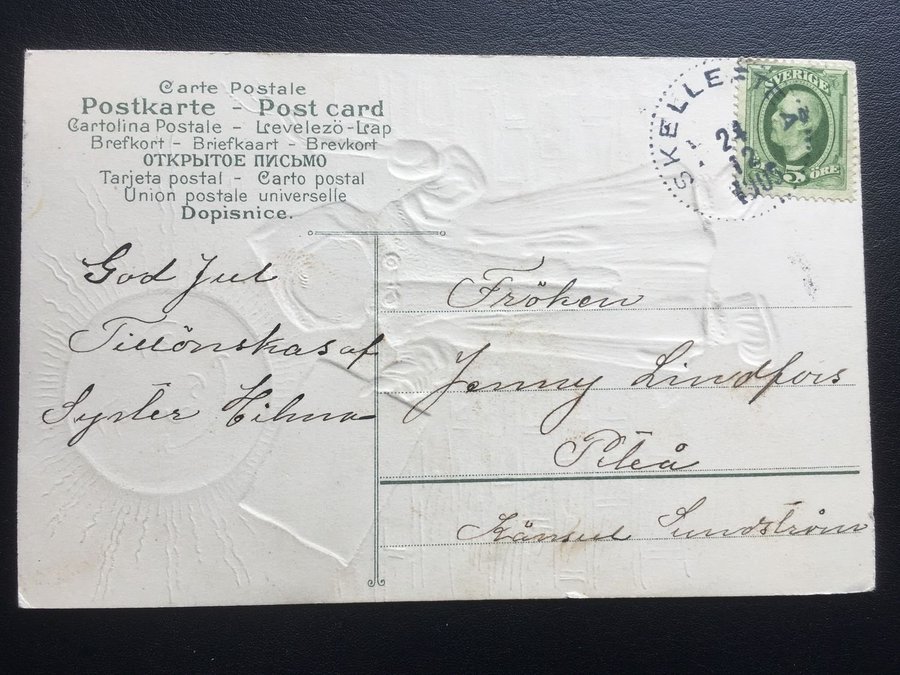 Carte Postale
Postkarte - Post card
Cartolina Postale - Levelezö-Lap
Brefkort - Briefkaart - Brevkort
ОТКРЫТОЕ ПИСЬМО
Tarjeta postal - Carto postal
Union postale universelle
Dopisnice.
SKELLEFTEÅ
24
12
SVERIGE
5 ÖRE
God Jul
Tillönskas af
Syster Hilma
Fröken
Jenny Lindfors
Piteå
Känsul Sundström